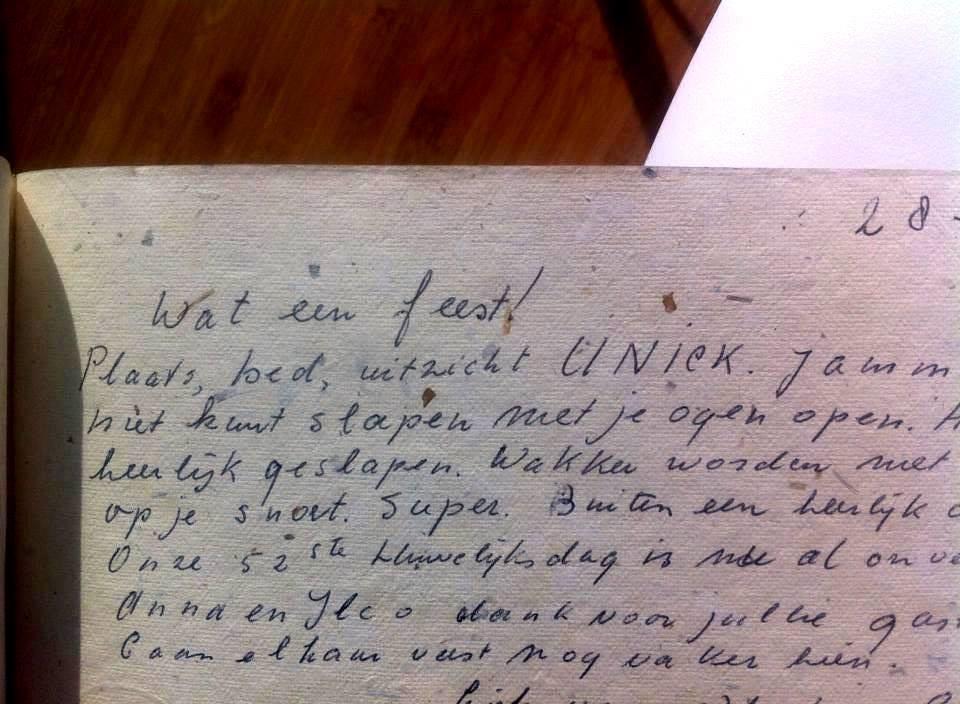 28-
Wat een feest!
Plaats, bed, uitzicht UNIEK. Jamm
niet kunt slapen met je ogen open.
heerlijk geslapen. Wakker worden met
op je snoet. Super. Buiten een heerlijk
Onze 52ste huwelijksdag is nu al onve
Anna en Ilco dank voor jullie gas
elkaar vast nog vaker hier.